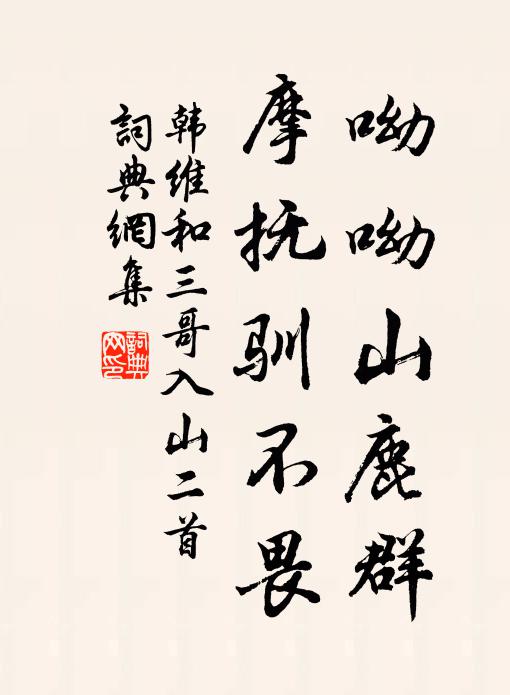 呦呦山鹿群
摩抚驯不畏
韩维和三哥入山二首
詞典網集
詞典网印